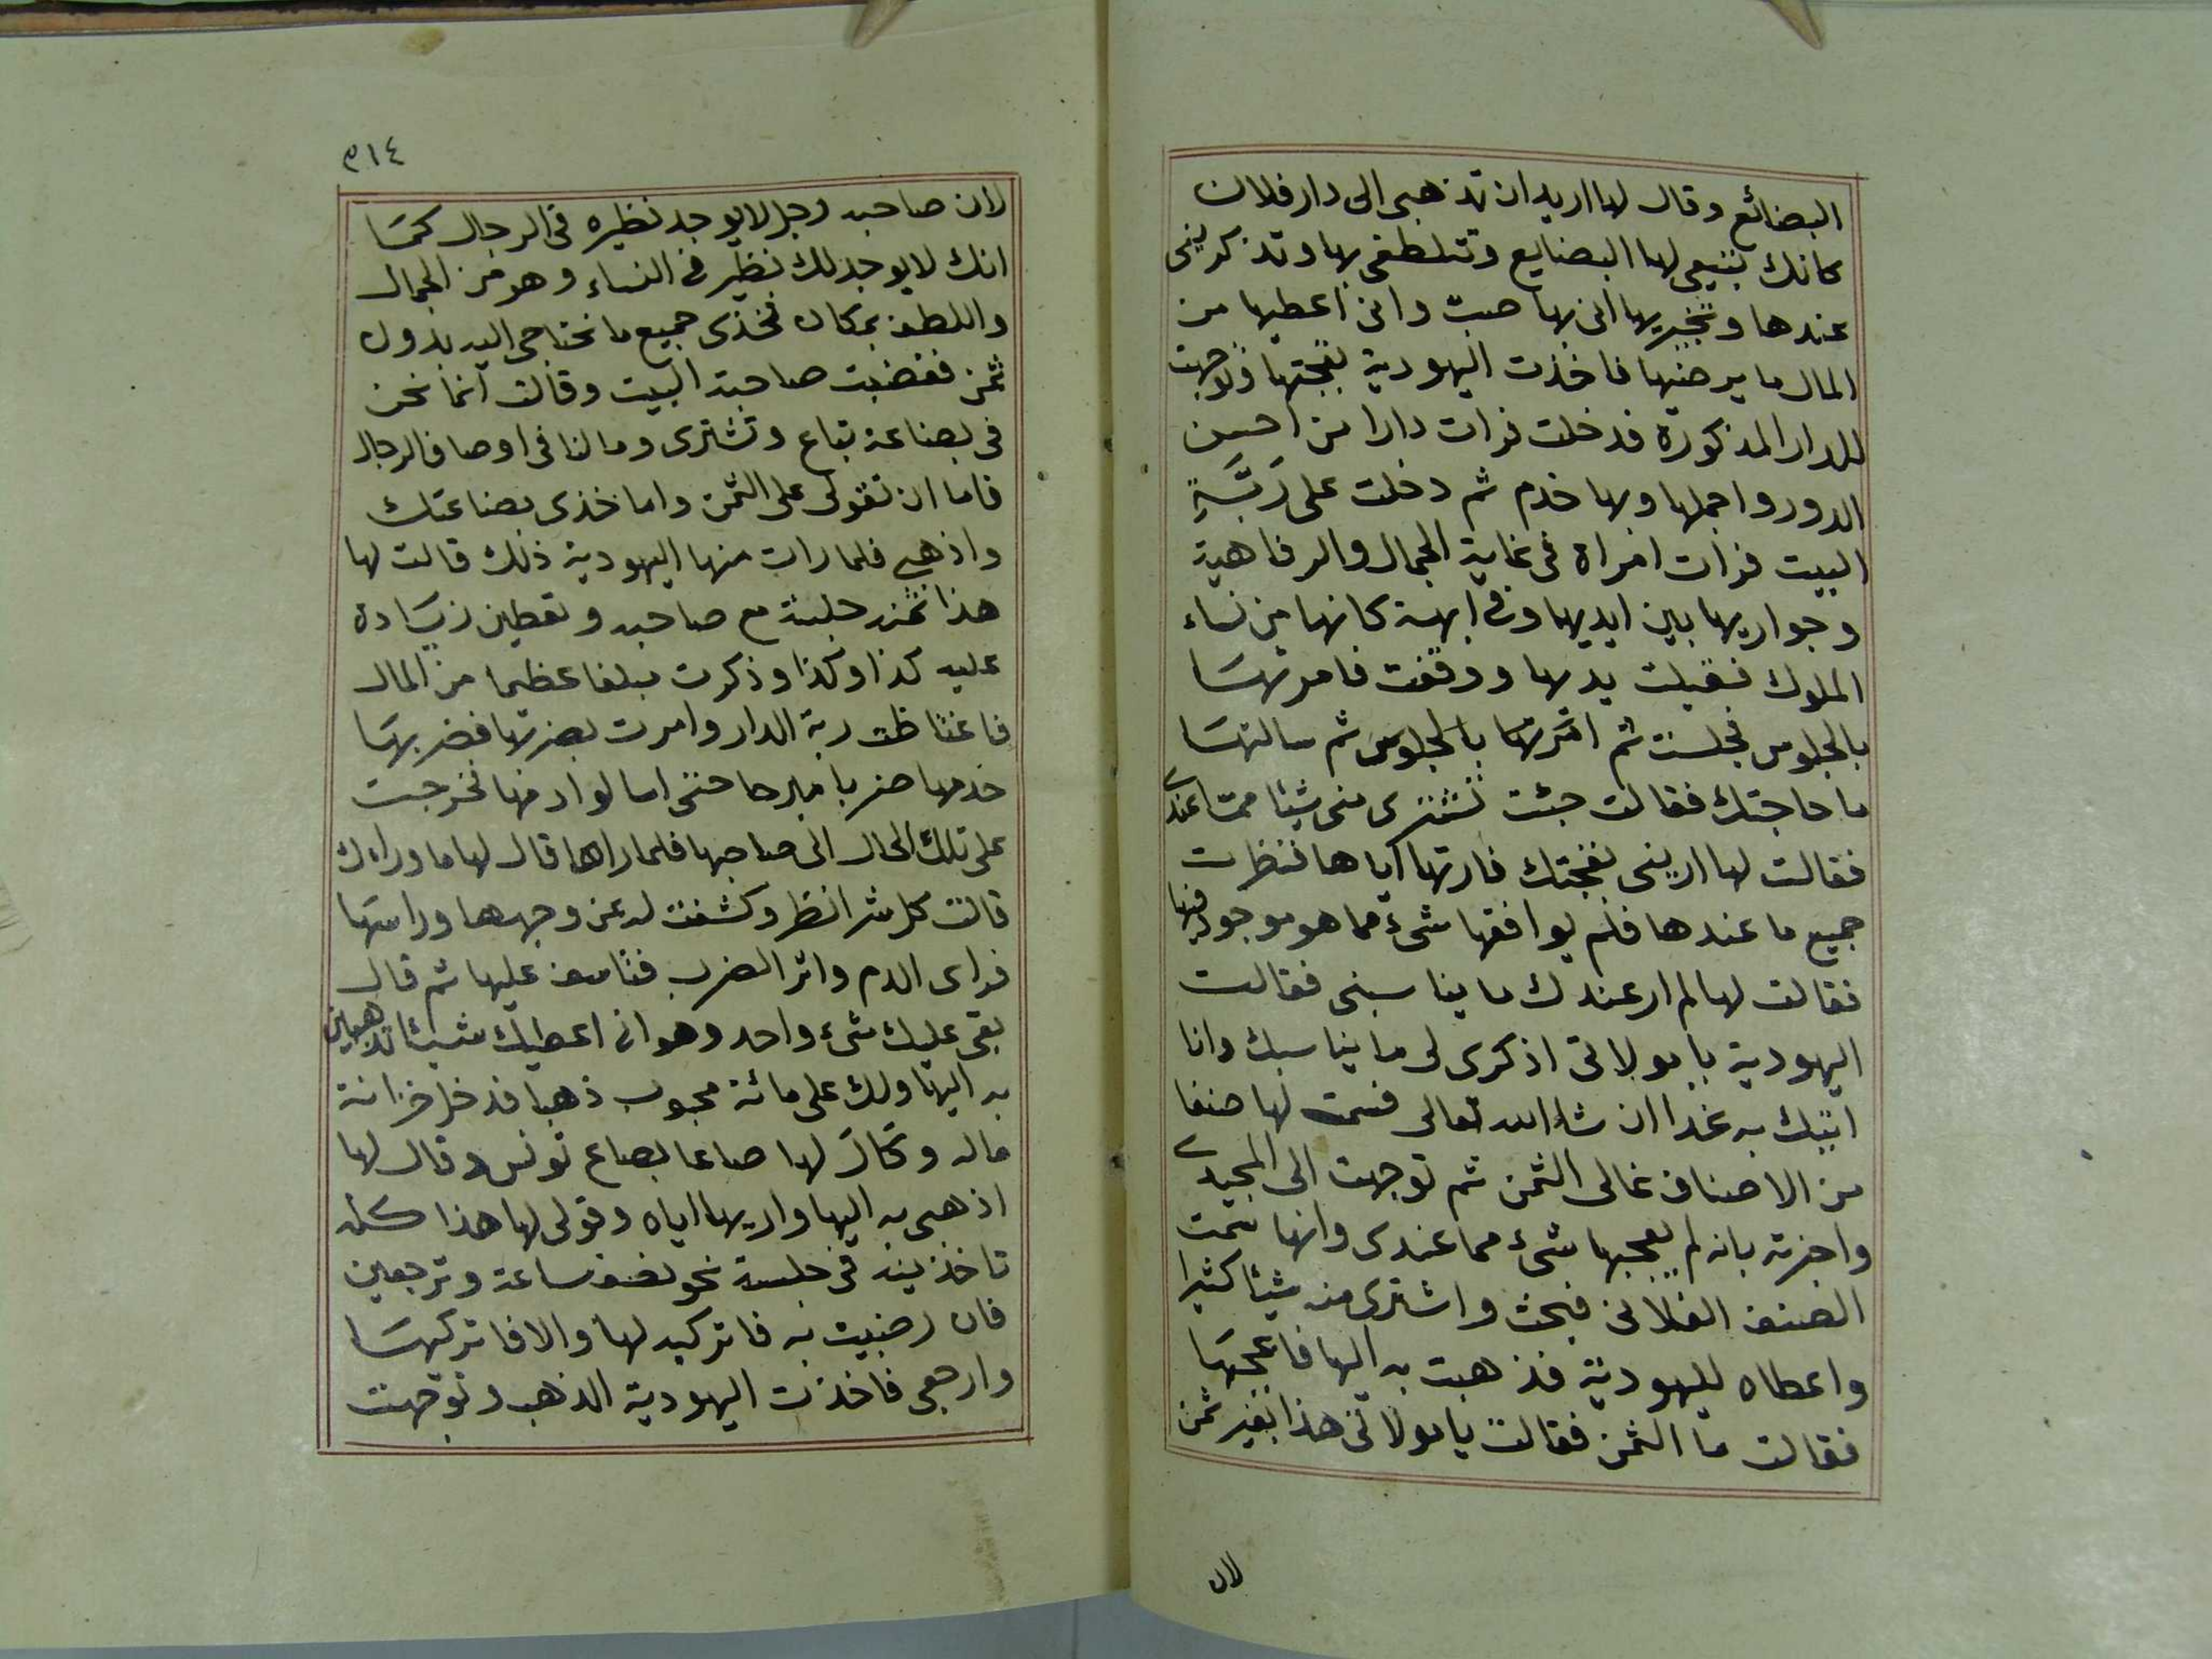 البضائع وقال لها اريد ان تذهبى الى دار فلان
كانك تبيعى لها البضايع وتتلطفى بها وتذكرينى
عندها وتخبريها انى بها صب وانى اعطيها من
المال ما يرضيها فاخذت اليهودية بقجتها وتوجهت
للدار المذكورة فدخلت فرات دارا من احسن
الدور واجملها وبها خدم ثم دخلت على رَبَّةِ
البيت فرات امراة فى غاية الجمال والرفاهية
وجواريها بين ايديها وفى ابهة كانها من نساء
الملوك فقبلت يديها ووقفت فامرتها
بالجلوس فجلست ثم امرتها بالجلوس ثم سالتها
ما حاجتك فقالت جئت تشترى منى شيئا مما عندى
فقالت لها ارينى بقجتك فارتها اياها فنظرت
جميع ما عندها فلم يوافقها شىء مما هو موجود فيها
فقالت لها لم ار عندك ما يناسبنى فقالت
اليهودية يا مولاتى اذكرى لى ما يناسبك وانا
اتيك به غدا ان شاء الله تعالى فسمت لها صنفا
من الاصناف غالى الثمن ثم توجهت الى المجيدى
واخبرته بانه لم يعجبها شىء مما عندى وانها سمت
الصنف الفلانى فبحث واشترى منه شيئا كثيرا
واعطاه لليهودية فذهبت به اليها فاعجبها
فقالت ما الثمن فقالت يا مولاتى هذا بغير ثمن
لان
٥١٤
لان صاحبه رجل لا يوجد نظيره فى الرجال كما
انك لا يوجد لك نظير فى النساء وهو من الجمال
واللطف بمكان فخذى جميع ما تحتاجى اليه بدون
ثمن فغضبت صاحبة البيت وقالت انما نحن
فى بضاعة تباع وتشترى وما لنا فى اوصاف الرجال
فاما ان تقولى على الثمن واما خذى بضاعتك
واذهبى فلما رات منها اليهودية ذلك قالت لها
هذا ثمنه جلسة مع صاحبه وتعطين زيادة
عليه كذا وكذا وذكرت مبلغا عظيما من المال
فاغتاظت ربة الدار وامرت بضربها فضربها
خدمها ضربا مبرحا حتى اسالوا دمها فخرجت
على تلك الحال الى صاحبها فلما راها قال لها ما وراءك
قالت كل شر انظر وكشفت له عن وجهها وراسها
فراى الدم واثر الضرب فتاسف عليها ثم قال
بقى عليك شىء واحد وهو انى اعطيك شيئا تذهبين
به اليها ولك على مائة محبوب ذهبا فدخل خزانة
ماله وكال لها صاعا بصاع تونس وقال لها
اذهبى به اليها واريها اياه وقولى لها هذا كله
تاخذينه فى جلسة نحو نصف ساعة وترجعين
فان رضيت به فاتركيه لها والا فاتركيها
وارجعى فاخذت اليهودية الذهب وتوجهت